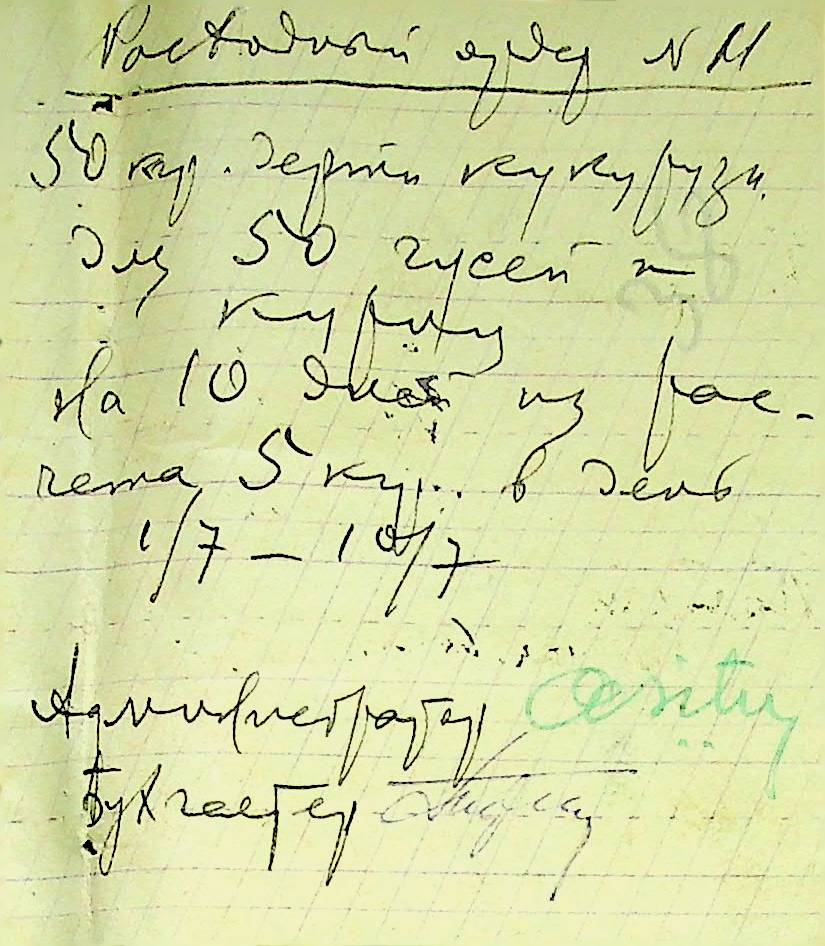 Расходный ордер N 11
50 кгр. дерти кукурузн.
для 50 гусей и
курчу
На 10 дней из рас-
чета 5 кгр. в день
1/7 – 10/7
Администратор
Бухгалтер